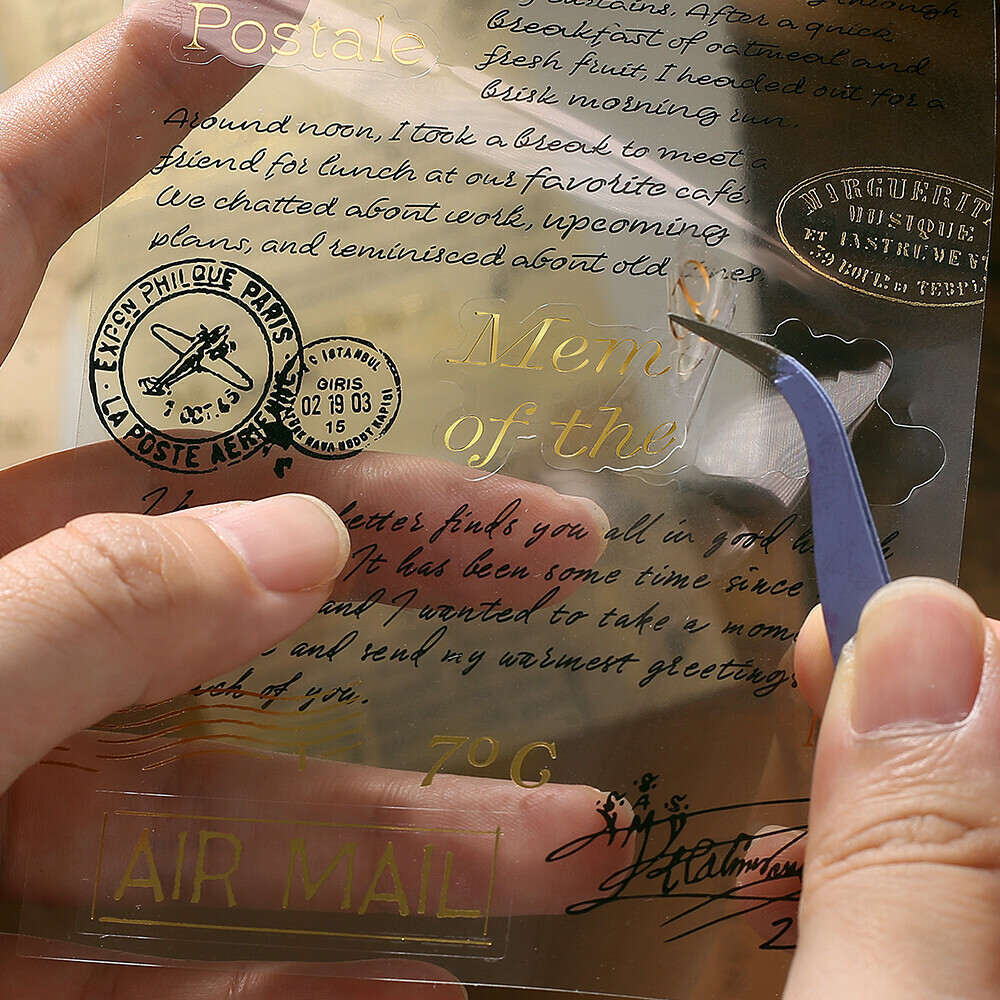 Postale
through
curtains. After a quick
breakfast of oatmeal and
fresh fruit, I headed out for a
brisk morning run.
Around noon, I took a break to meet a
friend for lunch at our favorite café.
We chatted about work, upcoming
plans, and reminisced about old
MIRGUERIT
MUSIQUE
ET INSTRUMEN
39 BOUL. DU TEMPL
EXPON PHILQUE PARIS
7 OCT.43
LA POSTE AERIENNE
ISTANBUL
GIRIS
02 19 03
15
Mem
of the
letter finds you all in good
It has been some time since
and I wanted to take a mom
and send my warmest greetings
of you.
70 C
AIR MAIL
2